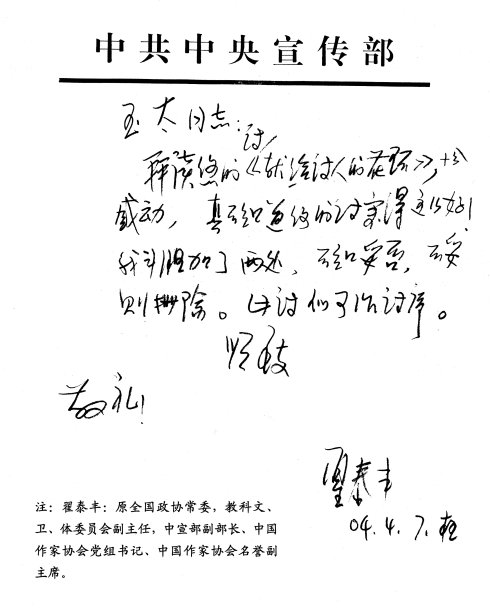 中共中央宣传部
玉太同志：
诗
拜读您的《献给诗人的花环》，十分
感动，真不知道您的诗写得这么好！
我斗胆加了两处，不知妥否，不妥
则排除。此诗似可作诗序。
顺致
敬礼！
翟泰丰
04.4.7.
注：翟泰丰：原全国政协常委，教科文、
卫、体委员会副主任，中宣部副部长、中国
作家协会党组书记、中国作家协会名誉副
主席。